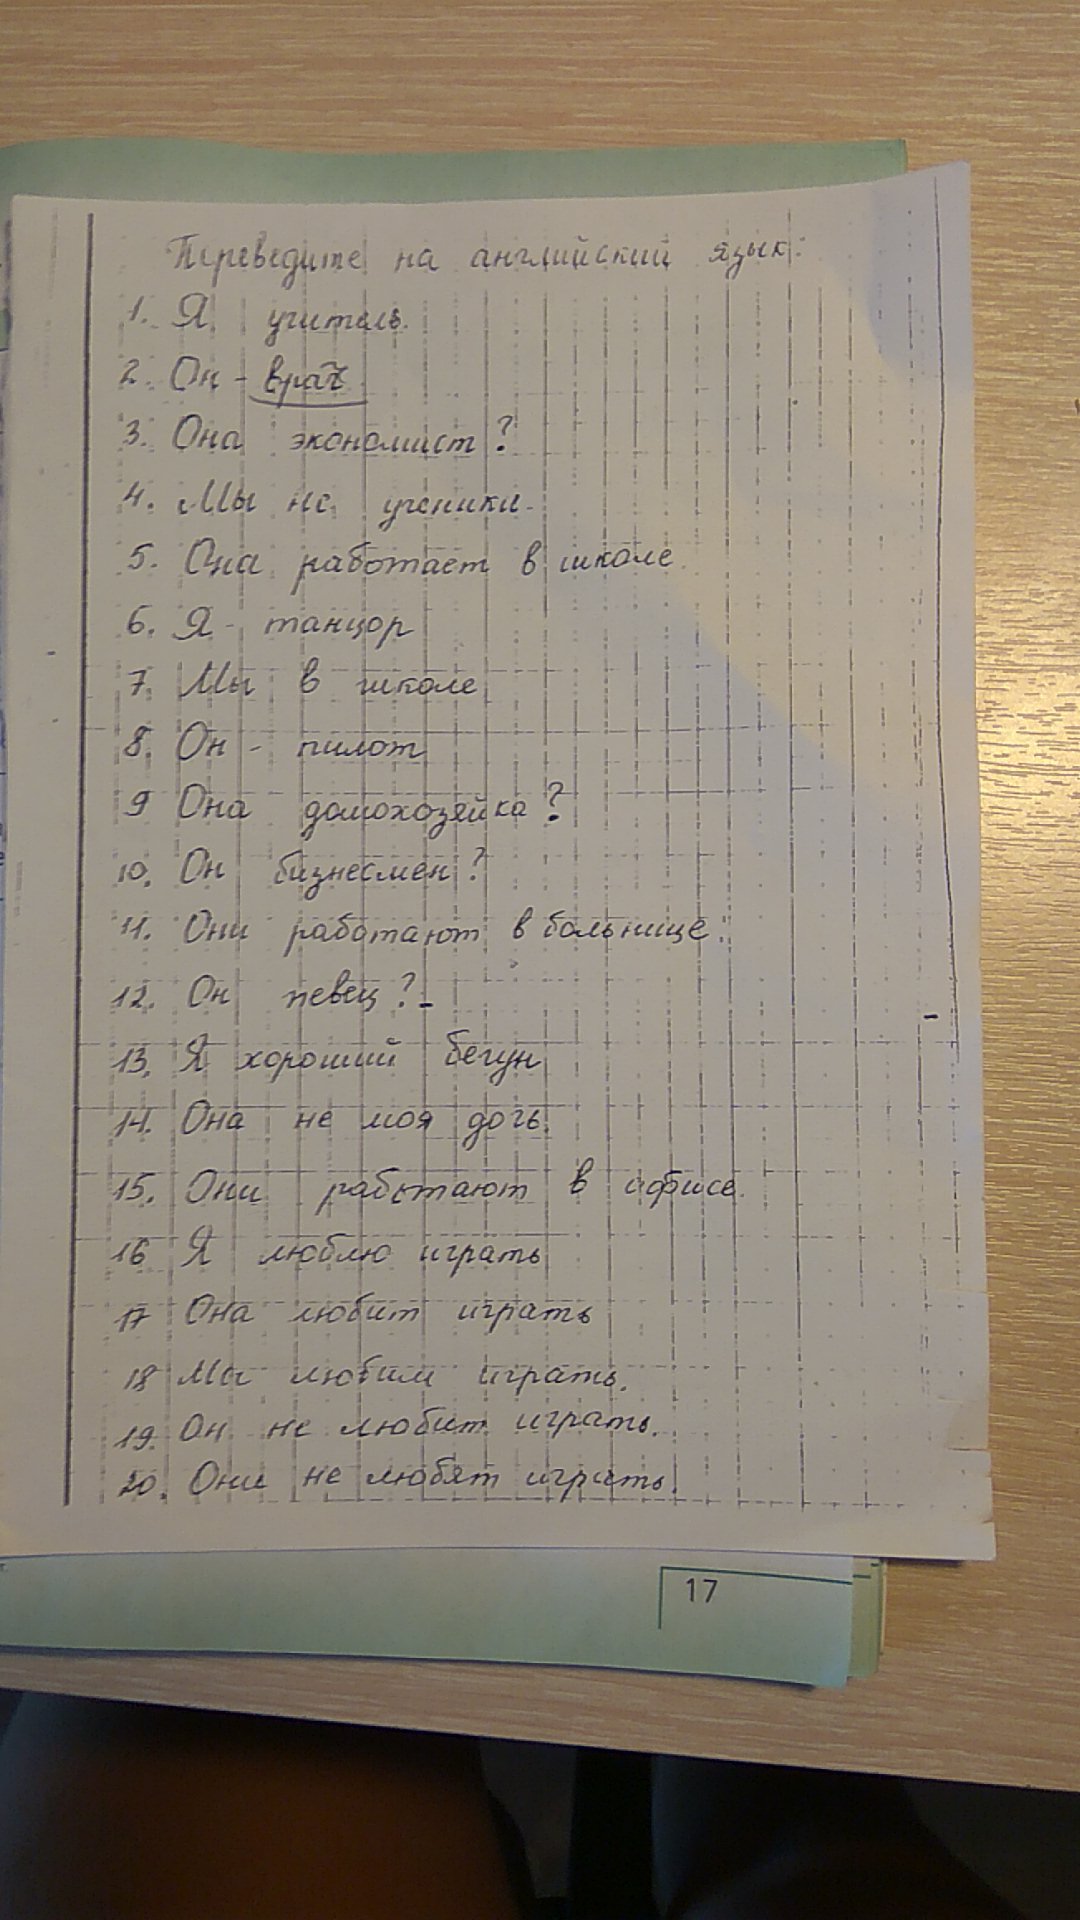 Переведите на английский язык:
1. Я учитель.
2. Он - врач.
3. Она экономист?
4. Мы не ученики.
5. Она работает в школе.
6. Я - танцор
7. Мы в школе
8. Он - пилот
9 Она домохозяйка?
10. Он бизнесмен?
11. Они работают в больнице.
12. Он певец?
13. Я хороший бегун
14. Она не моя дочь.
15. Они работают в офисе.
16 Я люблю играть
17 Она любит играть
18 Мы любим играть.
19. Он не любит играть.
20. Они не любят играть.
17